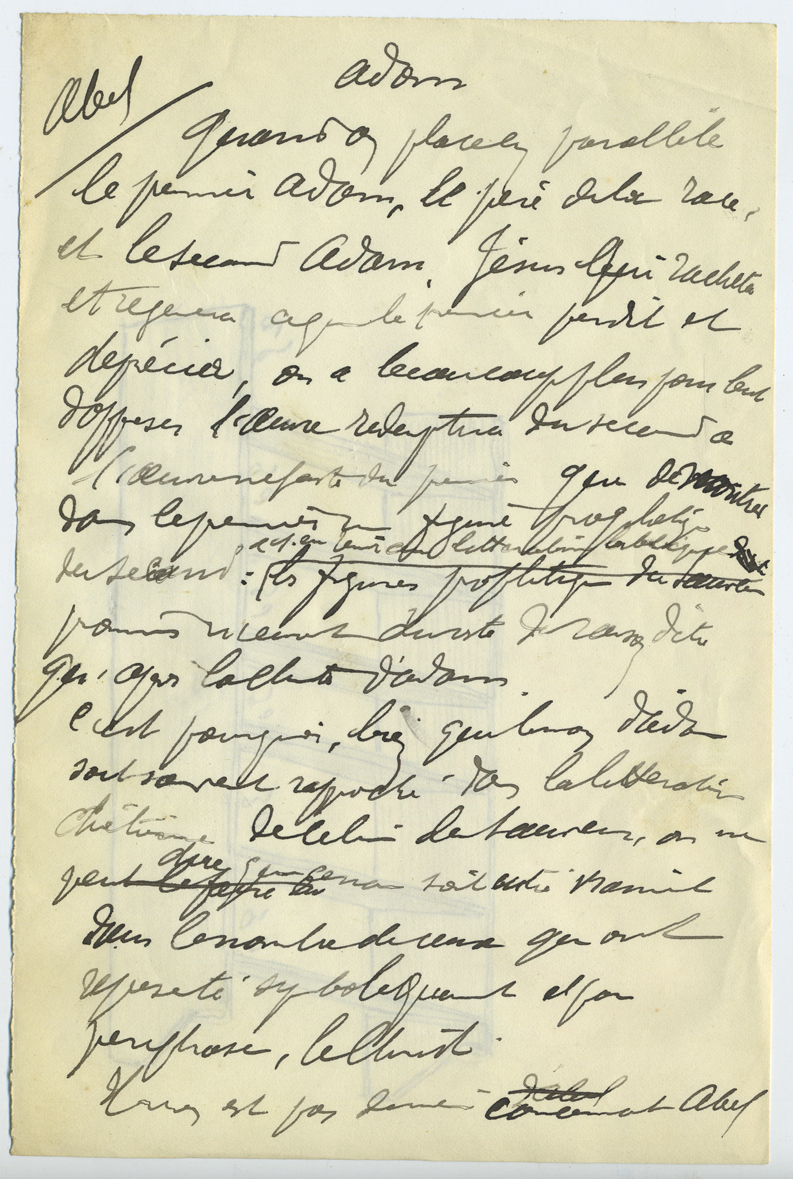 Adam
Abel
Quand on place en parallèle
le premier Adam, le père de la race,
et le second Adam, Jésus qui racheta
et régénéra ce que le premier perdit et
déprécia, on a beaucoup plus pour but
d'opposer l'œuvre rédemptrice du second a
l'œuvre nefaste du premier que de montrer
dans le premier une figure prophétique
du second : les figures prophétiques du sauveur
et, en littérature biblique
d'être
qu'après la chute d'Adam.
C'est pourquoi, bien que le nom d'Adam
soit souvent rapproché dans la littérature
chrétienne de celui du Sauveur, on ne
peut dire que ce nom soit entré vraiment
dans le nombre de ceux qui ont
représenté symboliquement et par
périphrase, le Christ.
Il n'en est pas de même concernant Abel